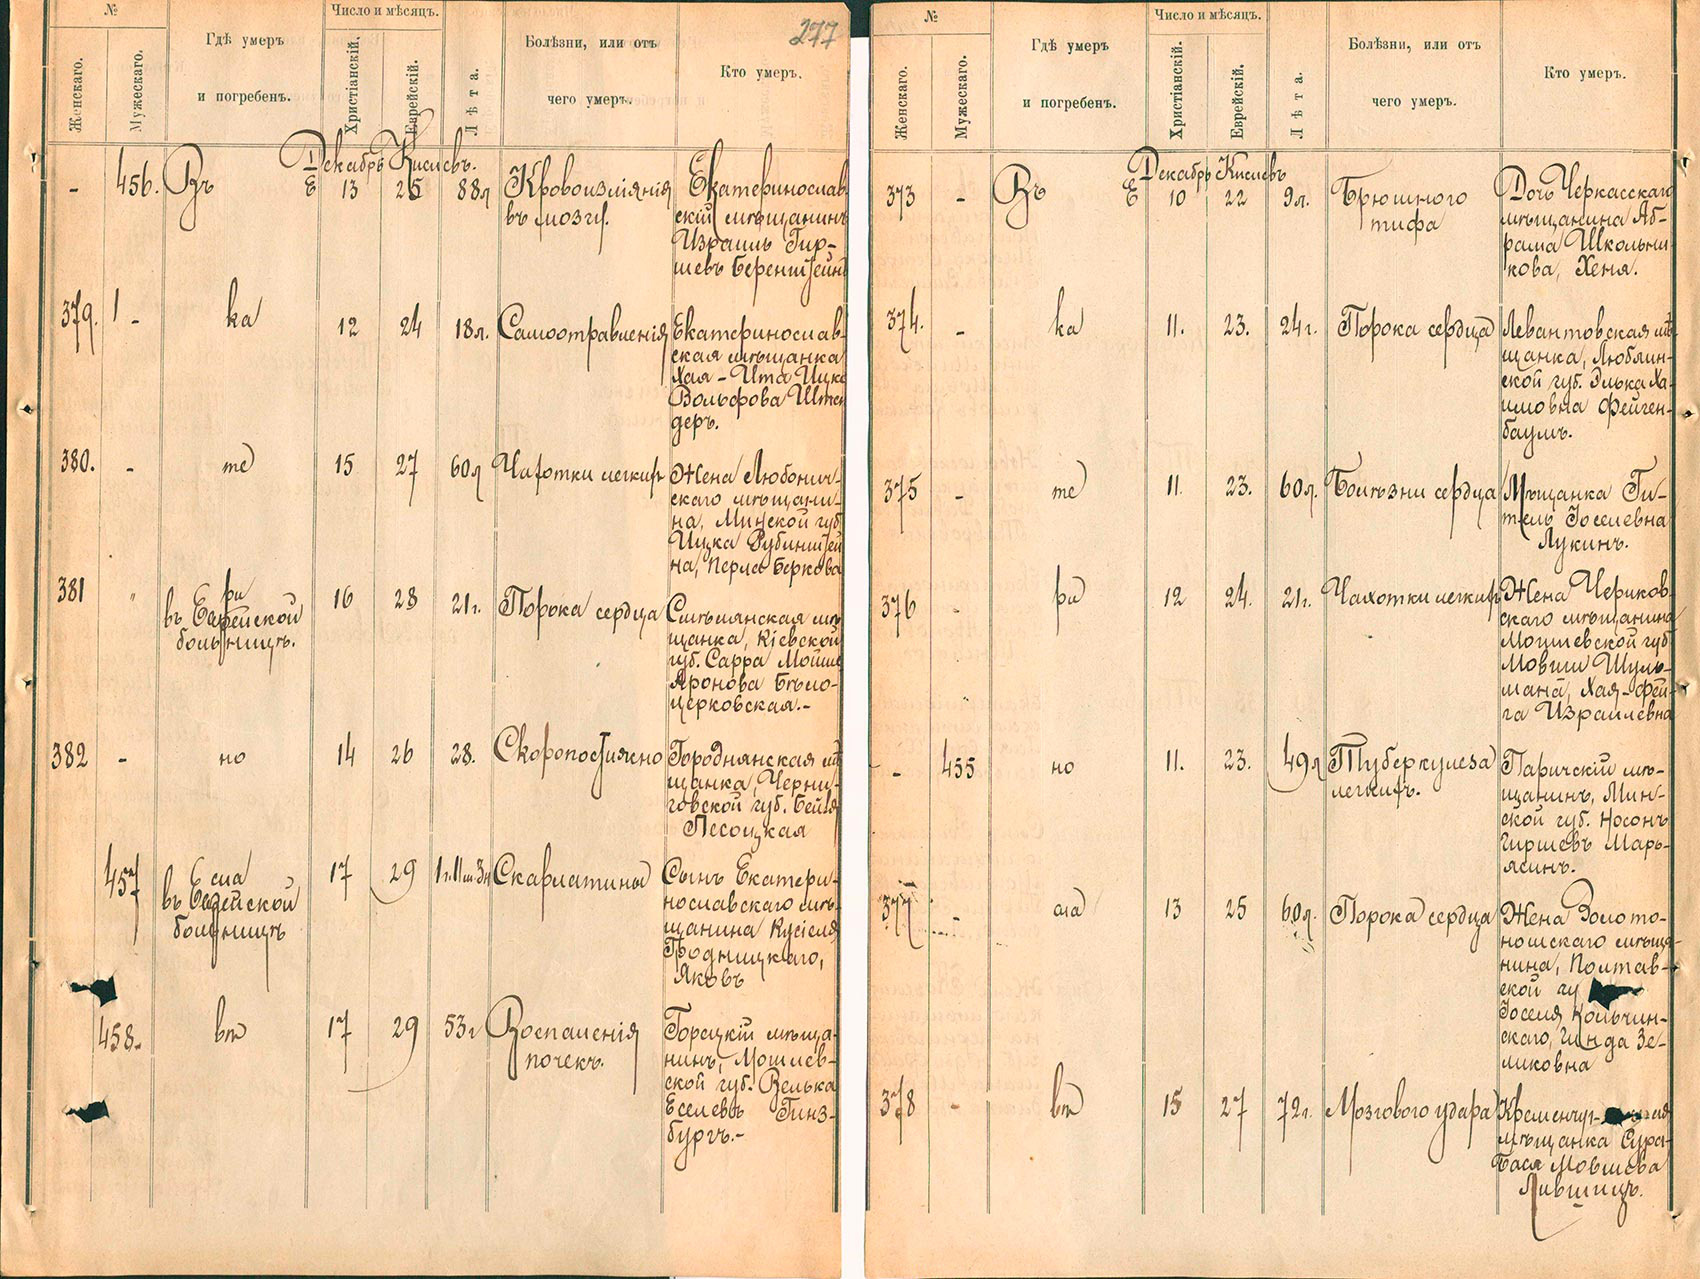 277
№
Число и мѣсяцъ.
Женскаго.
Мужескаго.
Гдѣ умеръ
и погребенъ.
Христіанскій.
Еврейскій.
Лѣта.
Болѣзни, или отъ
чего умеръ.
Кто умеръ.
Декабрь Кислевъ.
- 456. Въ Е 13 25 88л Кровоизліянія
въ мозгъ.
Екатеринослав-
скій мѣщанинъ
Израиль Гир-
шевъ Беренштейнъ
379. - ка 12 24 18л. Самоотравленія
Екатеринослав-
ская мѣщанка
Хая-Ита Ицко
Вольфова Штен
деръ.
380. - те 15 27 60л Чахотки легкихъ
Жена Любонич-
скаго мѣщани-
на, Минской губ
Ицка Рубинштей
на, Перла Беркова
381 " ри
въ Еврейской
больницѣ.
16 28 21г. Порока сердца
Смѣлянская мѣ
щанка, Кіевской
губ. Сарра Мойше
Аронова Бѣло-
церковская.-
382 - но 14 26 28. Скоропостижно
Городнянская мѣ
щанка, Черни-
говской губ. Бейля
Песоцкая
457 сла
въ Еврейской
больницѣ
17 29 1г.11м.3н Скарлатины
Сынъ Екатери-
нославскаго мѣ-
щанина Кусіеля
Гродницкаго,
Яковъ
458. вѣ 17 29 53г Воспаленія
почекъ.
Горецкій мѣща-
нинъ, Могилев-
ской губ. Велька
Еселевъ Гинз-
бургъ.-
№
Число и мѣсяцъ.
Женскаго.
Мужескаго.
Гдѣ умеръ
и погребенъ.
Христіанскій.
Еврейскій.
Лѣта.
Болѣзни, или отъ
чего умеръ.
Кто умеръ.
Декабрь Кислевъ
373 - Въ Е 10 22 9л. Брюшного
тифа
Дочь Черкасскаго
мѣщанина Аб-
рама Школьни-
кова, Хеня.
374. - ка 11. 23. 24г. Порока сердца
Левантовская мѣ-
щанка, Люблин-
ской губ. Элька Ха-
имовна Фейген-
баумъ.
375 - те 11. 23. 60л. Болѣзни сердца
Мѣщанка Ги-
тель Іоселевна
Лукинъ.
376 - ри 12 24. 21г. Чахотки легкихъ
Жена Чериков-
скаго мѣщанина
Могилевской губ
Мовши Шуль-
мана, Хая-Фей-
га Израилевна
- 455 но 11. 23. 49л Туберкулеза
легкихъ.
Паричскій мѣ-
щанинъ, Мин-
ской губ. Носонъ
Гиршевъ Марь-
ясинъ.
377 - сла 13 25 60л. Порока сердца
Жена Золото-
ношскаго мѣща-
нина, Полтав-
ской гу
Іоселя Кольчин-
скаго, Гинда Зе-
ликовна
378 - вѣ 15 27 72г. Мозгового удара
Кременчуг-
мѣщанка Сура-
Бася Мовшева
Лившицъ.